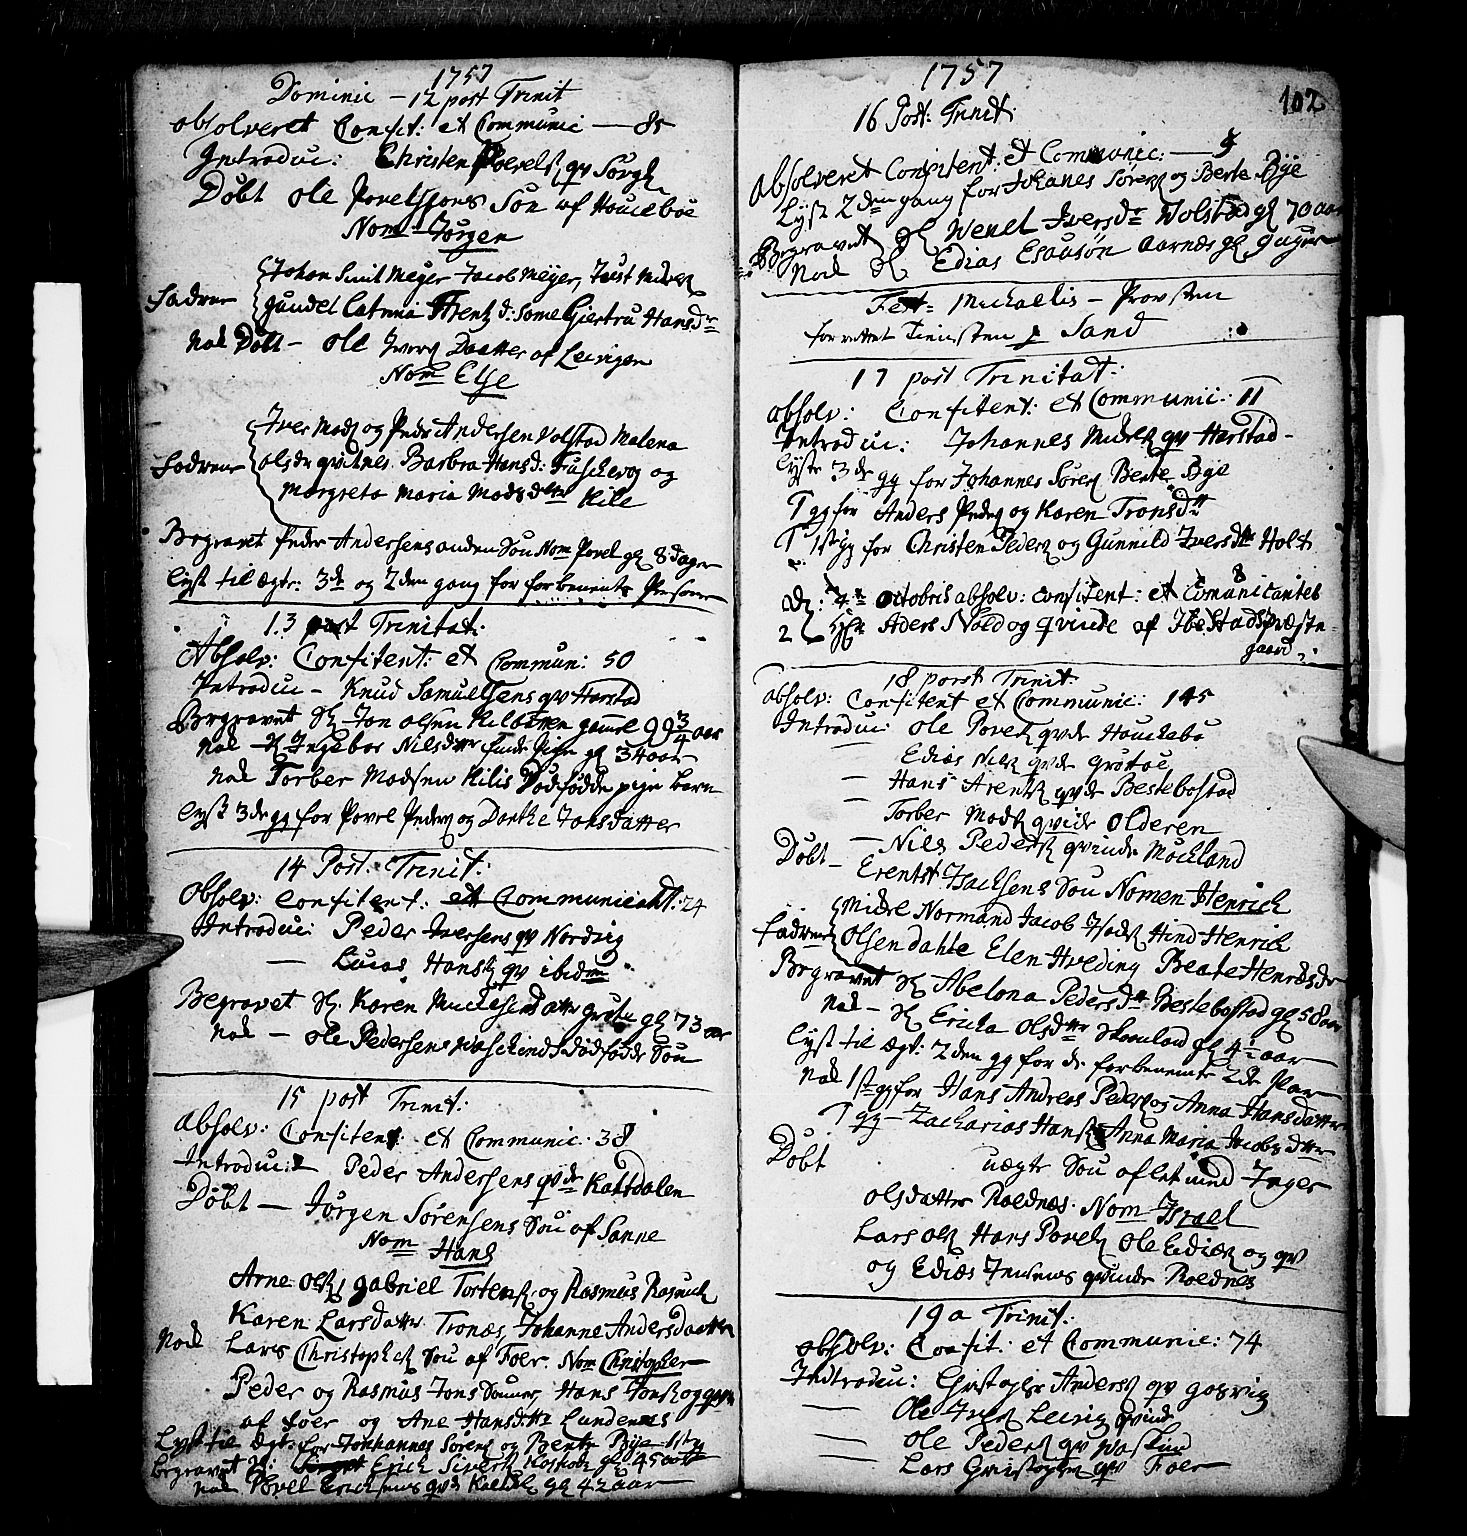 1757
Dominic - 12 post Trinit
absolveret Confit: et Communic — 85
Introduc: Christen Povels qv Sørgh
Døbt Ole Povelssons Søn af Houcboe
Nom Jørgen
Johan Smit Meyer Jacob Meyer, Just
Fadrene Gundel Catrina Arentz d: Some Giertru Hansdr
Nok Døbt - Ole Ivers Daatter af Leivigen
Nom Else
Iver Mads og Peder Andersen Volstad Malena
Fadrene Olsdr Barbra Hansd: Fuschevog og
Margreta Maria Madsdttr Kile
Begravet Peder Andersens anden Søn Nom Povel gl 8 dager
lyst til Ægte: 3de og 2den gang for forbenente Personer
13 post Trinitat:
Absolv: Confitent: et Commun: 50
Introduc - Knud Samuelsens qv Harstad
Begravet Sl Jon Olsen Kilbotten gamel 99 3/4 aar
Nok - Sl Ingebor Nilsdttr gl 34 aar
Nok Torber Madsen Kilis Dødfødde pige barn
lyst 3de gg for Povel Peders og Dorthe Jonsdatter
14 Post: Trinit:
Absolv: Confitent: et Communicant: 24
Introduc: Peder Iversens qv Nordvig
— Lucas Hans qv ibidm
Begravet Sl. Karen Mickelsdatter Grøtø gl 73 aar
Nok — Ole Pedersens Dødfødde Søn
15 post Trinit:
Absolv: Confitent: et Communic: 38
Introduc: Peder Andersens qvde Kattdalen
Døbt — Jørgen Sørensens Søn af Sanne
Nom Hans
Arne Ols, Gabriel Tortens og Rasmus
Karen Larsdatter Tronæs, Johanne Andersdatter
Nok Lars Christophers Søn af Foer. Nom Christopher
Peder og Rasmus Jons Sønner, Hans
af Foer og Ane Hansdttr Lundenes
Lyst til Ægt: for Johannes Sørens og Bente Bye 1ste g
begravet Sl: Erick Sivers gl 45 aar
Nok Povel Ericksens qvd gl 42 aar
1757
102
16 Post: Trinit:
Absolveret Confitent: et Communic: — 9
Lyst 2den gang for Johanes Sørens og Bente Bye
Begravet Sl Wenel Iversdr Wolstad gl 70 aar
Nok Sl Edias Esauson Aarnæs gl 9 uger
Fest= Michaelis - Provsten
forrettet Tienesten p Sand
17 post Trinitat:
absolv: Confitent: et Communic: 11
Introduc: Johannes qv Harstad -
lyste 3de gg for Johannes Sørens Bente Bye
T gg for Anders Peders og Karen Tronsdtr
T 1ste gg for Christen Peders og Gunnild Iversdtr Holt
D: 4de octobris absolv: confitent: et Comunicantes 8
2 Aders Nold og qvinde af Ibestads præste-
gaard
18 post Trinit:
absolv: Confitent et Communic: 145
Introduc: Ole Povels qvde Houckebø
— Edias qvde Grøtøe
— Hans Arents qvde Bestebostad
— Torber Mads qvinde Olderen
— Nils Peders qvinde Mockland
Døbt — Erentst Isachsens Søn Nomen Henrick
Normand Jacob Hind Henrick
Fadrene Olsen Dahle Elen Hveding Beate Henrichsdr
Begravet Sl Abelona Pedersdtr Bestebostad gl 58 aar
Nok - Sl Ericka Olsdttr Skonland gl 4 1/2 aar
lyst til Ægt: 2den gg for de forbenente 2de Par
Nok 1ste gg for Hans Andreas Peders og Anna Hansdatter
T gg — Zacharias Hans Anna Maria Jacobsdttr
Døbt uægte Søn aflet med Inger
Olsdatter Roldnæs. Nom Israel
Lars Ols Hans Povels Ole Edias og qv
og Edias Jensens qvinde Roldnes
19 a Trinit:
absolv: Confit: et Communic: 74
Indtroduc: Christopher Anders qv Gosvig
— Ole Ivers Leivig qvinde
— Ole Peders qv
— Lars Christopher qv Foer